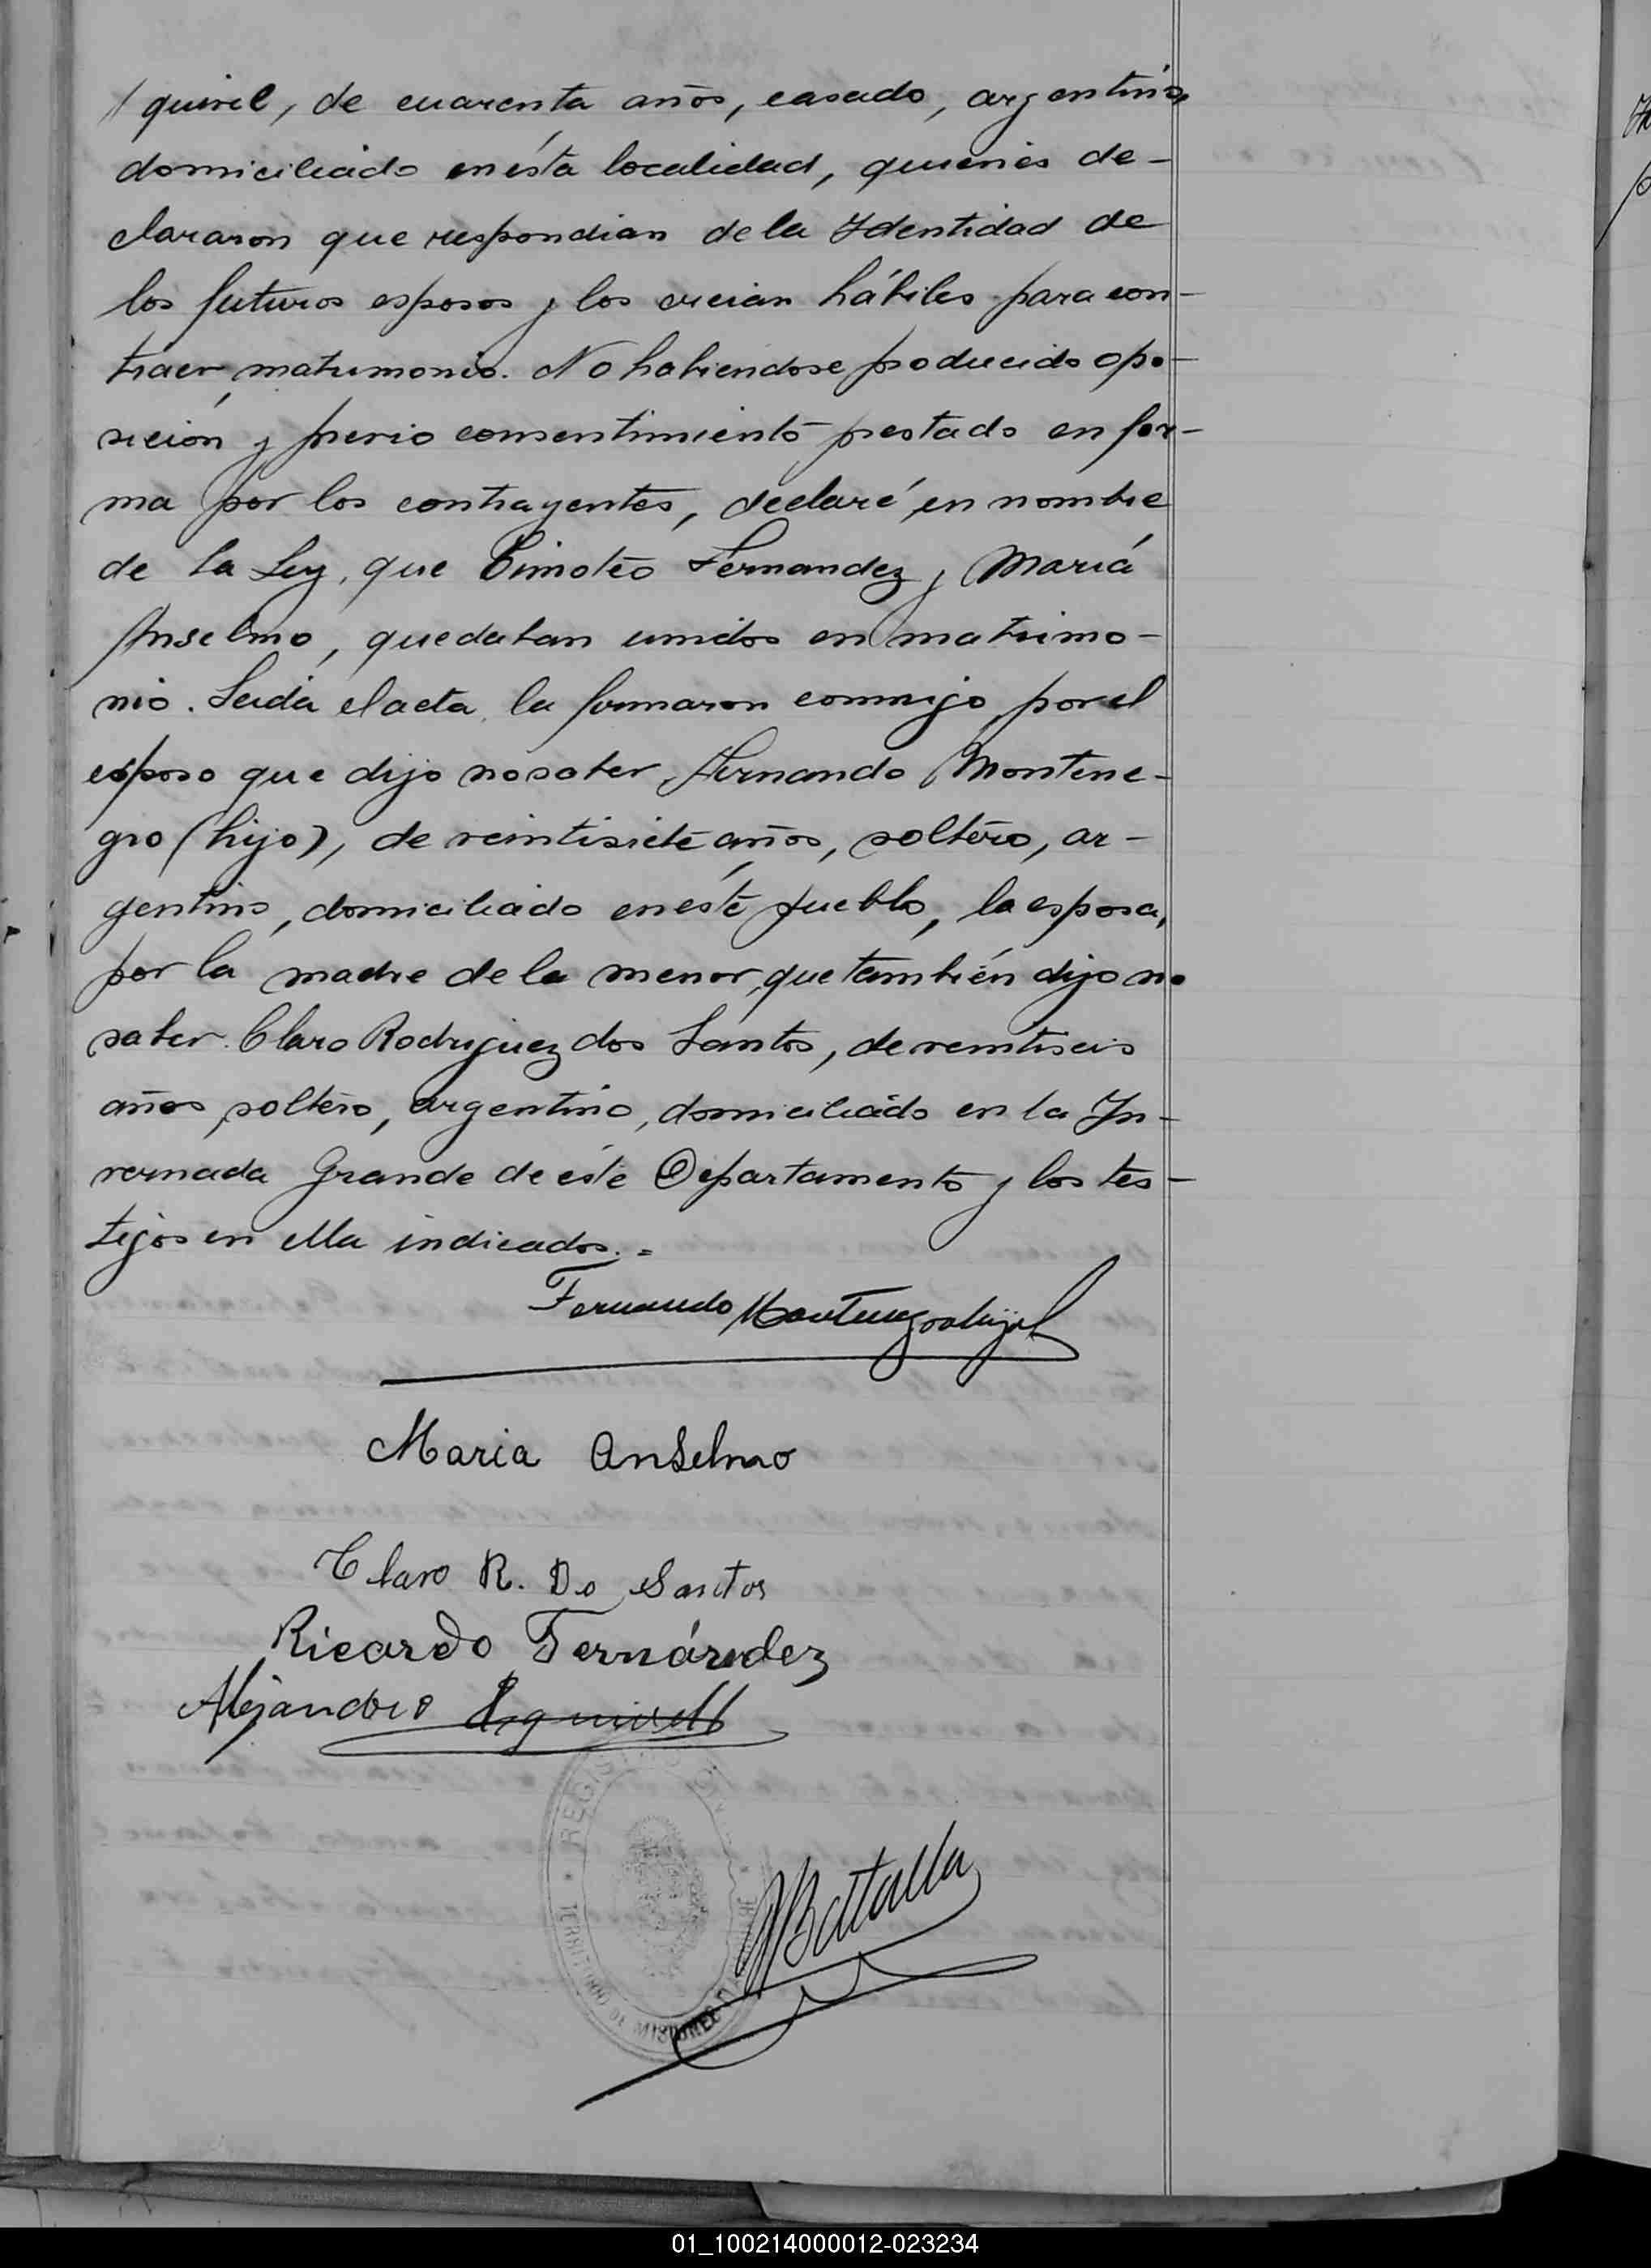 quivel, de cuarenta años, casado, argentino,
domiciliado en ésta localidad, quienes de-
clararon que respondian de la Identidad de
los futuros esposos y los creian hábiles para con-
traer matrimonio. No habiendose producido opo-
sición y previo consentimiento prestado en for-
ma por los contrayentes, declaré en nombre
de la Ley, que Timoteo Fernandez y María
Anselmo, quedaban unidos en matrimo-
nio. Leida el acta, la firmaron conmigo, por el
esposo que dijo no saber, Fernando Montene-
gro (hijo), de veintisiete años, soltero, ar-
gentino, domiciliado en éste pueblo, la esposa,
por la madre de la menor, que también dijo no
saber. Claro Rodriguez dos Santos, de veintiseis
años, soltero, argentino, domiciliado en la In-
vernada Grande de éste Departamento y los tes-
tigos en ella indicados.=
Fernando Montenegro hijo
Maria Anselmo
Claro R. Do Santos
Ricardo Fernández
Alejandro Esquivell
REGIS
TERRITORIO DE MISIONES
Batalla
01_100214000012-023234